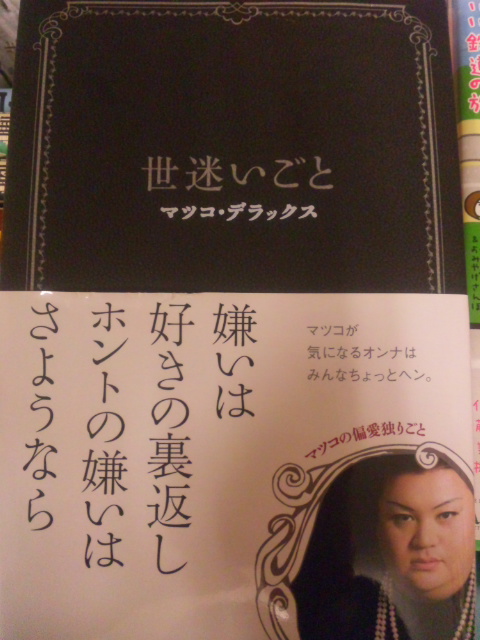 世迷いごと
マツコ・デラックス
嫌いは
好きの裏返し
ホントの嫌いは
さようなら
マツコが
気になるオンナは
みんなちょっとヘン。
マツコの偏愛独りごと